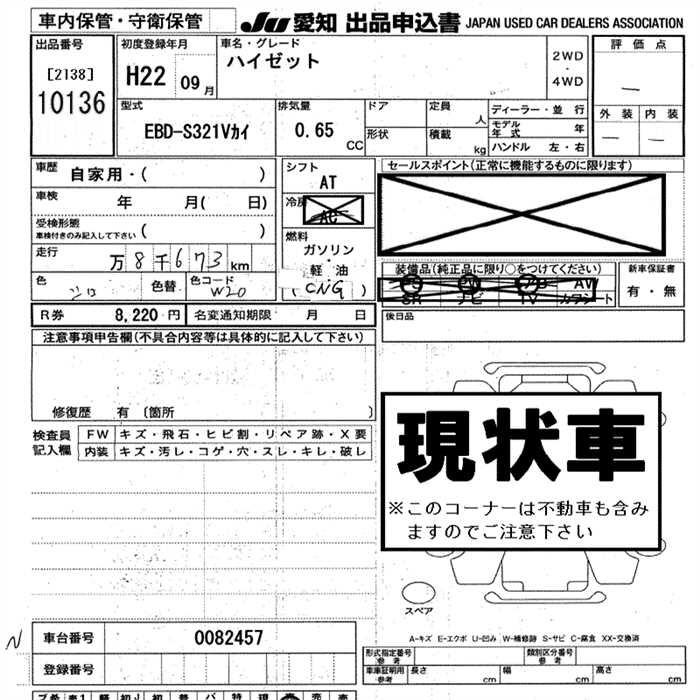 車内保管・守衛保管
JU 愛知 出品申込書 JAPAN USED CAR DEALERS ASSOCIATION
出品番号
[2138]
10136
初度登録年月
H22 09月
車名・グレード
ハイゼット
2WD
・
4WD
評価点
—
外装 内装
— —
型式
EBD-S321Vカイ
排気量
0.65 CC
ドア
形状
定員 人
積載 kg
ディーラー・並行
モデル年式 年
ハンドル 左・右
車歴
自家用・( )
車検
年 月( 日)
受検形態
車検付きのみ記入して下さい ( )
走行
万 8 千 6 73 km
色 シロ 色替 色コード W20
シフト
AT
冷房
AC
燃料
ガソリン
・
軽油
(CNG)
セールスポイント(正常に機能するものに限ります)
装備品(純正品に限り○をつけてください)
PS PW AW
SR ナビ TV カワシート
新車保証書
有・無
後日品
R券 8,220円 名変通知期限 月 日
注意事項申告欄(不具合内容等は具体的に記入して下さい)
修復歴 有 〔箇所 〕
検査員
記入欄
FW キズ・飛石・ヒビ割・リペア跡・X要
内装 キズ・汚レ・コゲ・穴・スレ・キレ・破レ
現状車
※このコーナーは不動車も含み
ますのでご注意下さい
スペア
A-キズ E-エクボ U-凹み W-補修跡 S-サビ C-腐食 XX-交換済
N
車台番号 0082457
登録番号
形式指定番号
参考
類別区分番号
参考
車庫証明用
参考
長さ cm 幅 cm 高さ cm